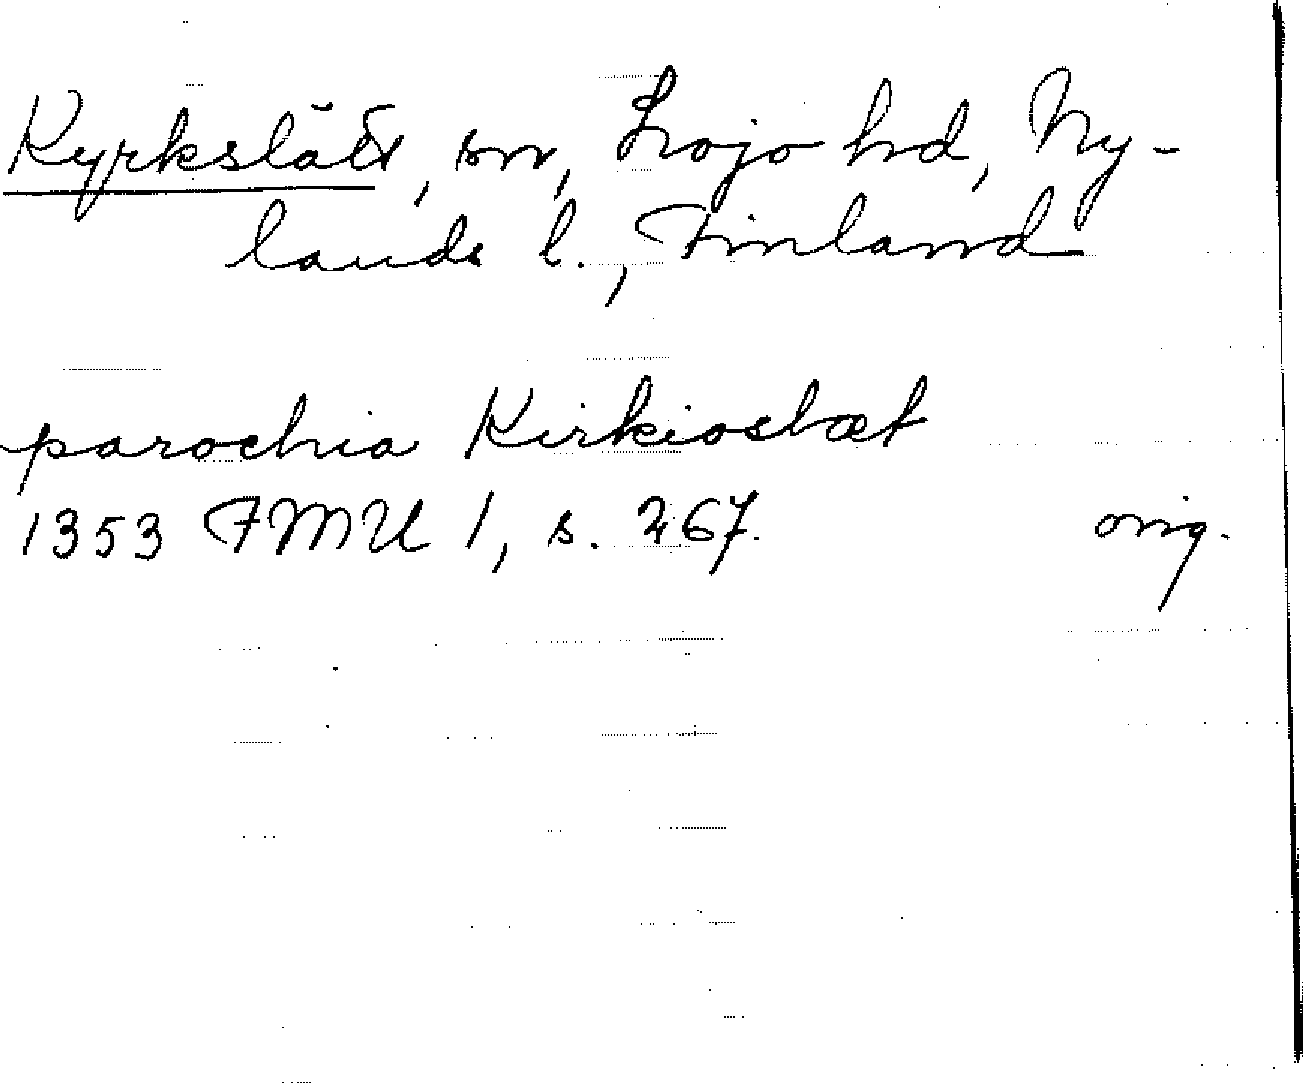 Kyrkslätt, sn, Lojo hd, Ny-
lands l., Finland
parochia Kirkioslæt
1353 FMU 1, s. 267.
orig.